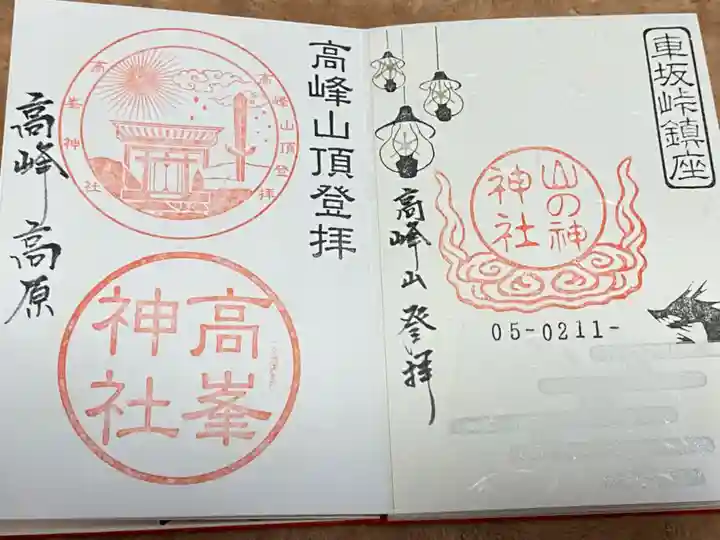 車坂峠鎮座
山の神
神社
高峰山登拝
05-0211-
高峰山頂登拝
高峰山頂登拝
高峯神社
高峯
神社
高峰高原